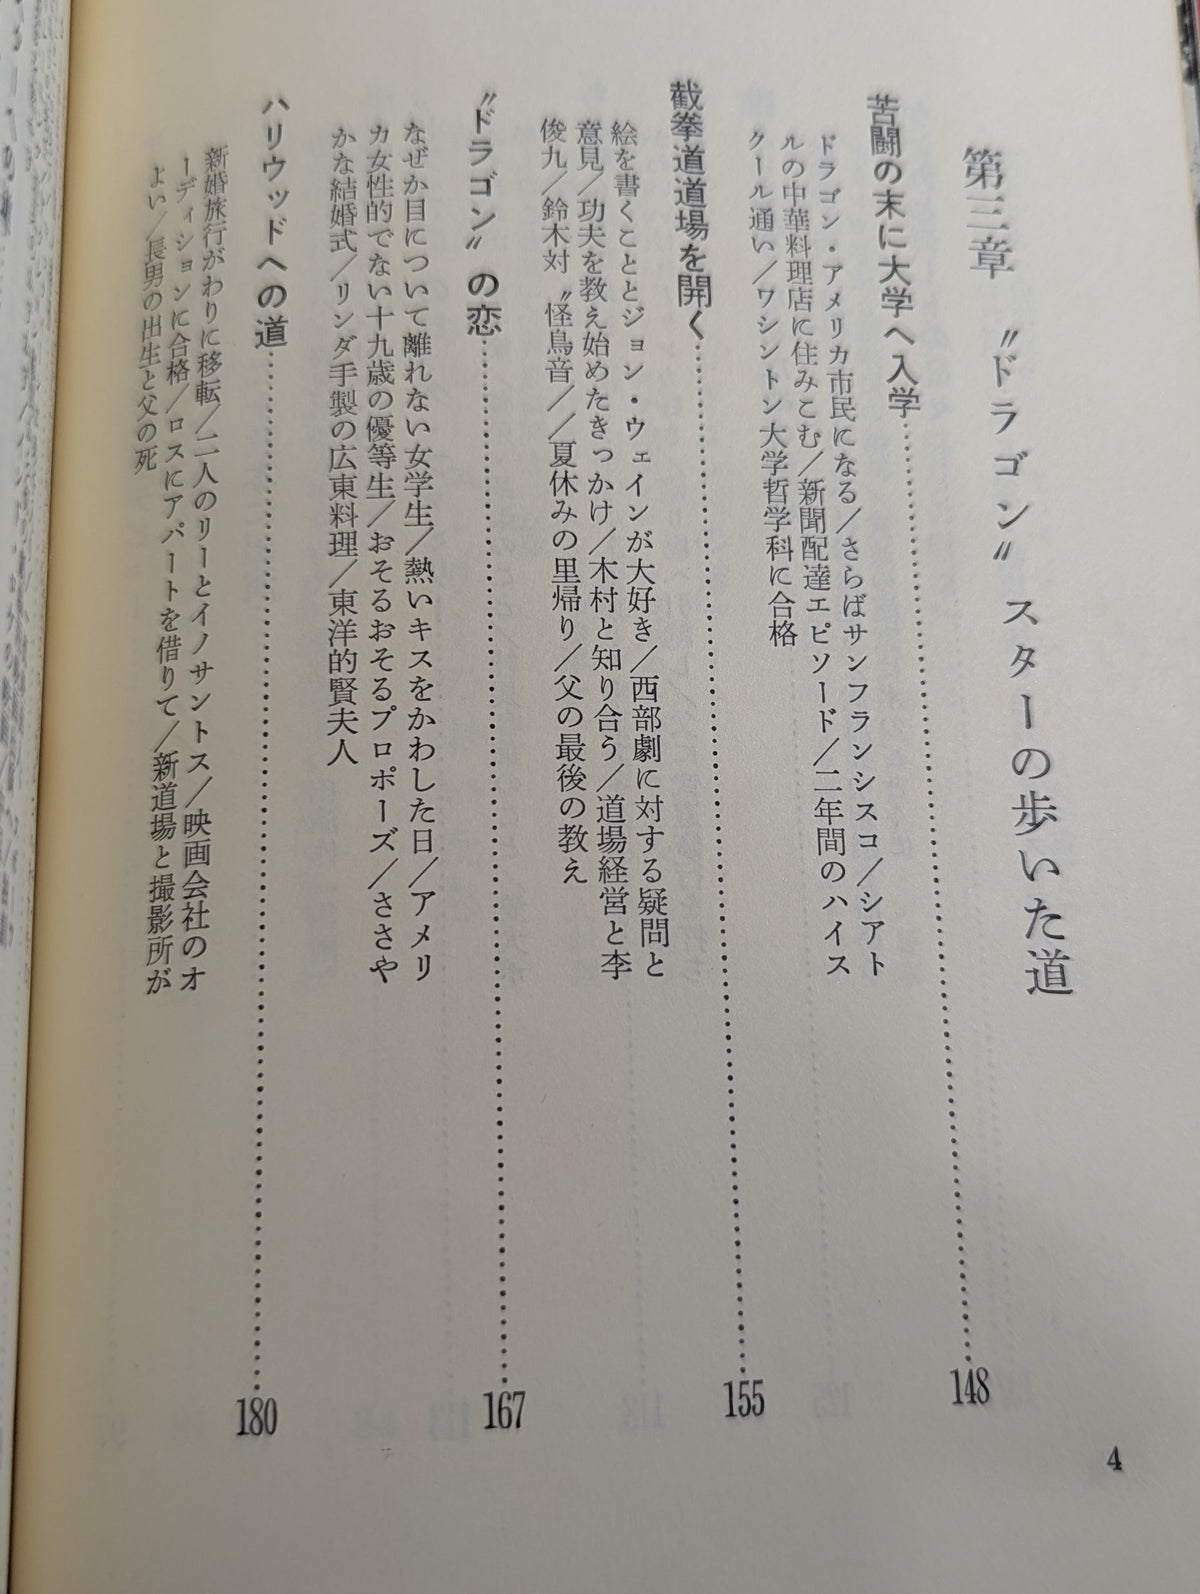 第三章　〝ドラゴン〟スターの歩いた道
苦闘の末に大学へ入学……148
ドラゴン・アメリカ市民になる／さらばサンフランシスコ／シアト
ルの中華料理店に住みこむ／新聞配達エピソード／二年間のハイス
クール通い／ワシントン大学哲学科に合格
截拳道道場を開く……155
絵を書くこととジョン・ウェインが大好き／西部劇に対する疑問と
意見／功夫を教え始めたきっかけ／木村と知り合う／道場経営と李
俊九／鈴木対〝怪鳥音／／夏休みの里帰り／父の最後の教え
〝ドラゴン〟の恋……167
なぜか目について離れない女学生／熱いキスをかわした日／アメリ
カ女性的でない十九歳の優等生／おそるおそるプロポーズ／ささや
かな結婚式／リンダ手製の広東料理／東洋的賢夫人
ハリウッドへの道……180
新婚旅行がわりに移転／二人のリーとイノサントス／映画会社のオ
ーディションに合格／ロスにアパートを借りて／新道場と撮影所が
よい／長男の出生と父の死
4